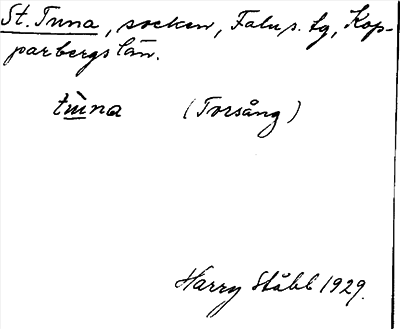 St. Tuna, socken, Falu s. lg, Kop-
parbergs län.
tùna (Torsång)
Harry Ståhl 1929.